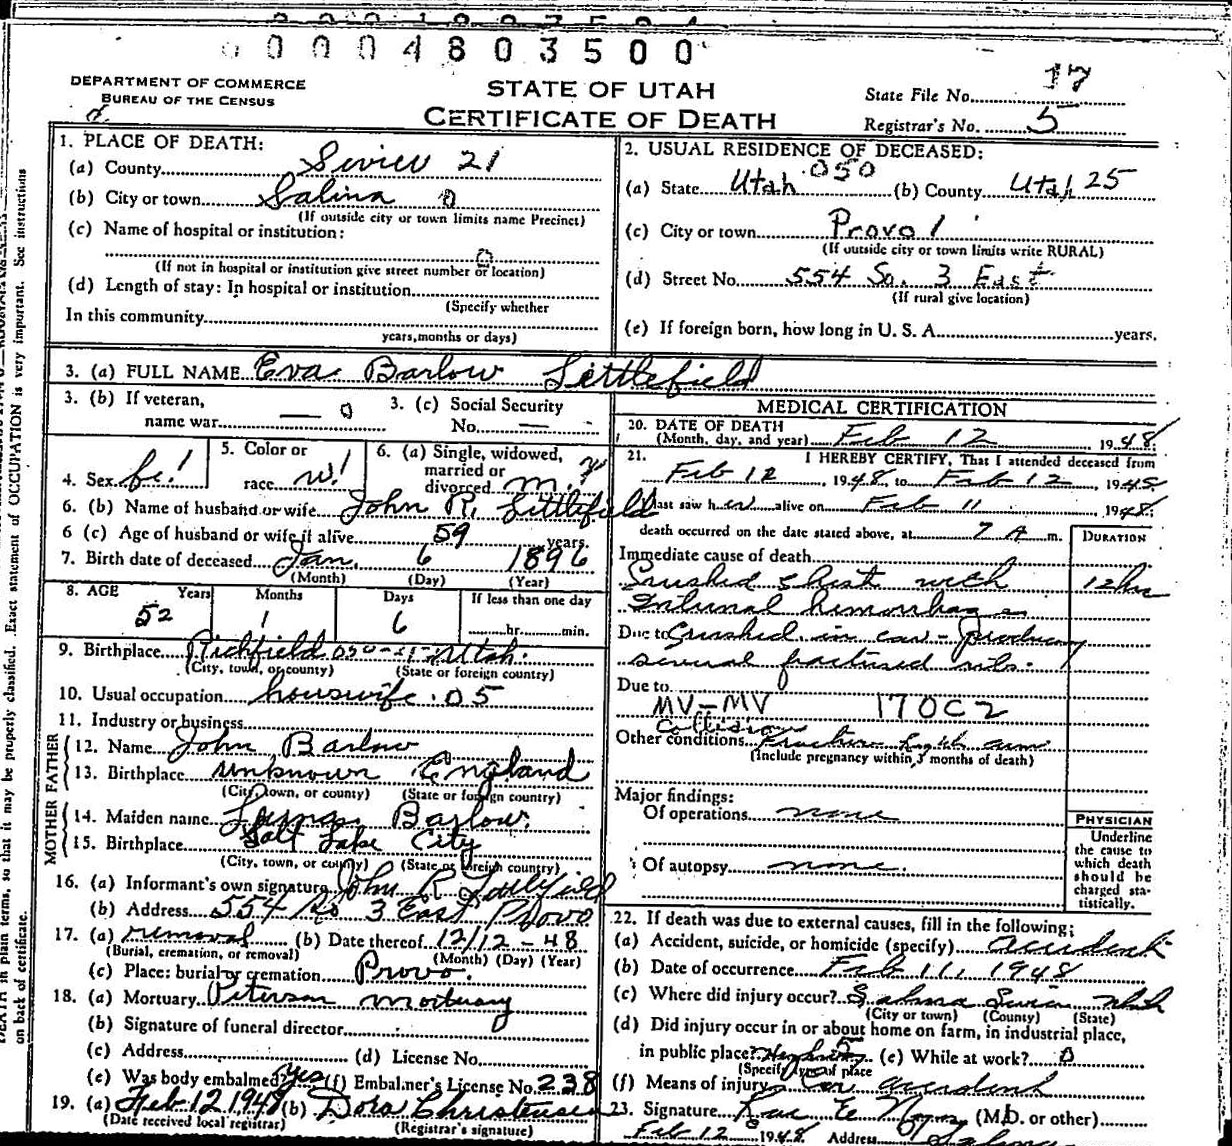 0 0 0 4 8 0 3 5 0 0
DEPARTMENT OF COMMERCE
BUREAU OF THE CENSUS
STATE OF UTAH
CERTIFICATE OF DEATH
State File No. 17
Registrar's No. 5
1. PLACE OF DEATH:
(a) County Sevier 21
(b) City or town Salina 0
(If outside city or town limits name Precinct)
(c) Name of hospital or institution:
0
(If not in hospital or institution give street number or location)
(d) Length of stay: In hospital or institution
(Specify whether
In this community
years, months or days)
2. USUAL RESIDENCE OF DECEASED:
(a) State Utah 050 (b) County Utah 25
(c) City or town Provo 1
(If outside city or town limits write RURAL)
(d) Street No. 554 So. 3 East
(If rural give location)
(e) If foreign born, how long in U. S. A. years.
3. (a) FULL NAME Eva Barlow Littlefield
3. (b) If veteran,
name war — 0
3. (c) Social Security
No. —
4. Sex fe 1
5. Color or
race w 1
6. (a) Single, widowed,
married or
divorced m.
6. (b) Name of husband or wife John R. Littlefield
6 (c) Age of husband or wife if alive 59 years
7. Birth date of deceased Jan. 6 1896
(Month) (Day) (Year)
8. AGE Years Months Days If less than one day
52 1 6 hr. min.
9. Birthplace Richfield 050-21-Utah.
(City, town, or county) (State or foreign country)
10. Usual occupation housewife 05
11. Industry or business
FATHER
12. Name John Barlow
13. Birthplace unknown England
(City, town, or county) (State or foreign country)
MOTHER
14. Maiden name Barlow
15. Birthplace Salt Lake City
(City, town, or county) (State or foreign country)
16. (a) Informant's own signature John R Littlefield
(b) Address 554 So 3 East Provo
17. (a) removal (b) Date thereof 12/12-48
(Burial, cremation, or removal) (Month) (Day) (Year)
(c) Place: burial or cremation Provo.
18. (a) Mortuary Peterson mortuary
(b) Signature of funeral director
(c) Address (d) License No.
(e) Was body embalmed? yes (f) Embalmer's License No. 238
19. (a) Feb 12 1948 (b) Dora Christensen
(Date received local registrar) (Registrar's signature)
MEDICAL CERTIFICATION
20. DATE OF DEATH
(Month, day, and year) Feb 12 1948
21. I HEREBY CERTIFY, That I attended deceased from
Feb 12, 1948, to Feb 12, 1948
I last saw her alive on Feb 11 1948
death occurred on the date stated above, at 7 A m.
DURATION
Immediate cause of death
Crushed chest with 12 hr
Internal hemorrhage
Due to Crushed in car - producing
several fractured ribs.
Due to
MV-MV 170C2
Collision
Other conditions Fracture Right arm
(Include pregnancy within 3 months of death)
Major findings:
Of operations none
Of autopsy none.
PHYSICIAN
Underline
the cause to
which death
should be
charged sta-
tistically.
22. If death was due to external causes, fill in the following;
(a) Accident, suicide, or homicide (specify) accident
(b) Date of occurrence Feb 11, 1948
(c) Where did injury occur? Salina Sevier Utah
(City or town) (County) (State)
(d) Did injury occur in or about home on farm, in industrial place,
in public place? Highway (e) While at work? 0
(Specify type of place
(f) Means of injury Car accident
23. Signature Rae E Noyes (M.D. or other)
Feb 12 1948 Address Salina
is very important. See instructions
Exact statement of OCCUPATION
DEATH in plain terms, so that it may be properly classified.
on back of certificate.